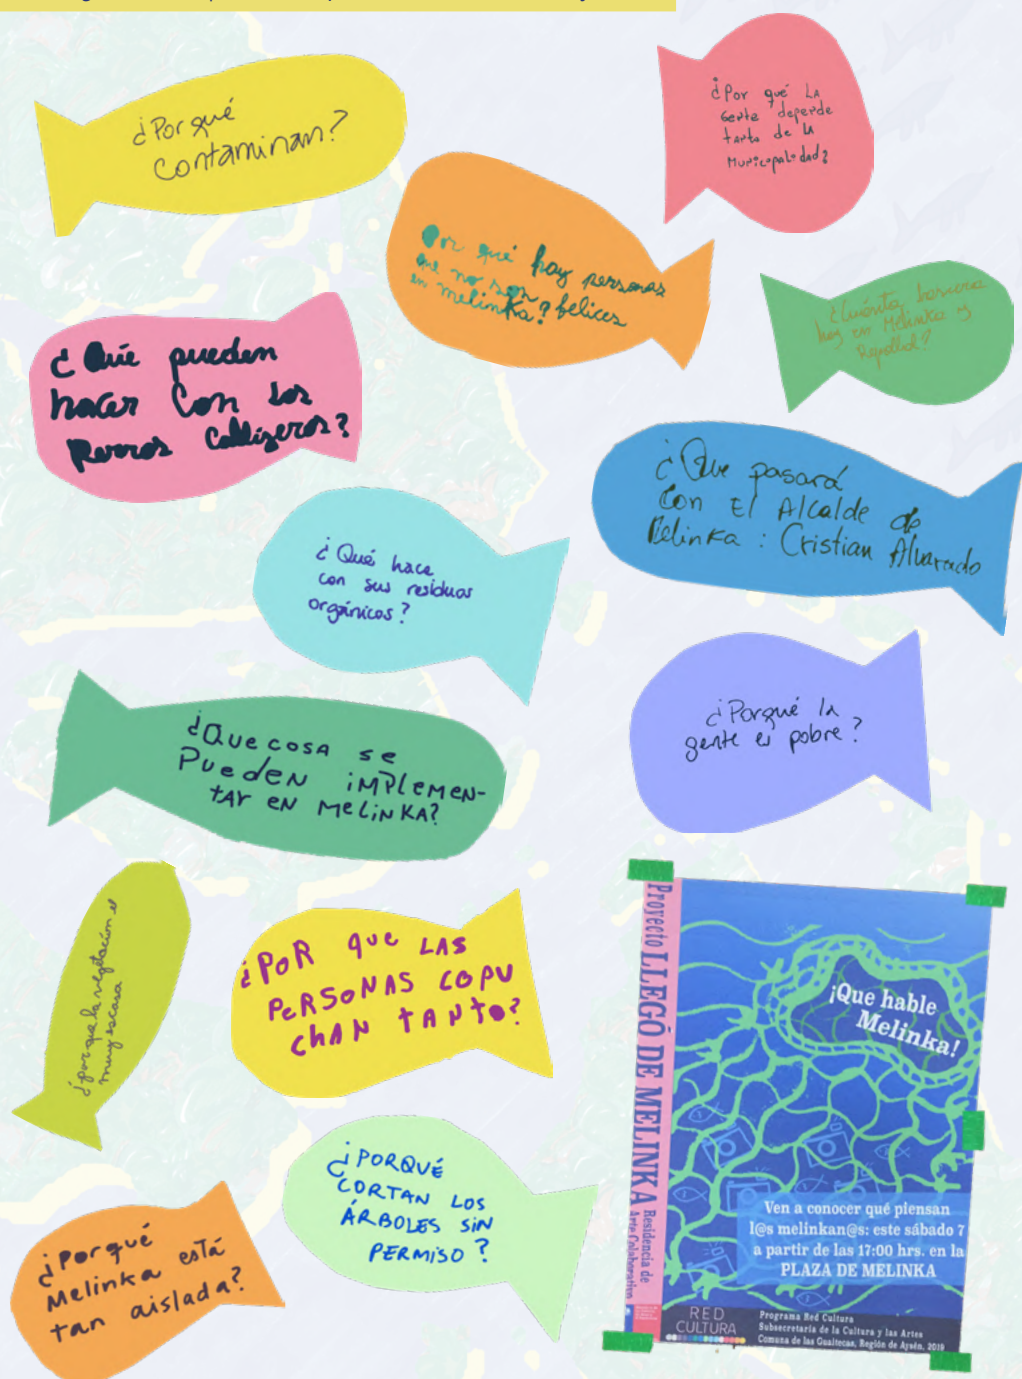 ¿Porqué
contaminan?
¿Por qué La
Gente depende
tanto de la
Municipalidad?
Por qué hay personas
que no son felices
en melinka?
¿Cuánta basura
hay en Melinka y
Repollal?
¿Qué pueden
hacer con los
perros callejeros?
¿Que pasará
Con El Alcalde de
Melinka : Cristian Alvarado
¿Qué hace
con sus residuos
orgánicos?
¿Porqué la
gente es pobre?
¿Que cosa se
Pueden implemen-
tar en Melinka?
¿por que la vegetación es
muy escasa
¿POR que LAS
PERSONAS COPU
chAN tANto?
¿PORQUÉ
CORTAN LOS
ÁRBOLES SIN
PERMISO?
¿Porqué
Melinka está
tan aislada?
Proyecto LLEGÓ DE MELINKA Residencia de
Arte Colaborativo
¡Que hable
Melinka!
Ven a conocer qué piensan
l@s melinkan@s: este sábado 7
a partir de las 17:00 hrs. en la
PLAZA DE MELINKA
RED
CULTURA
Programa Red Cultura
Subsecretaría de la Cultura y las Artes
Comuna de las Guaitecas, Región de Aysén, 2019